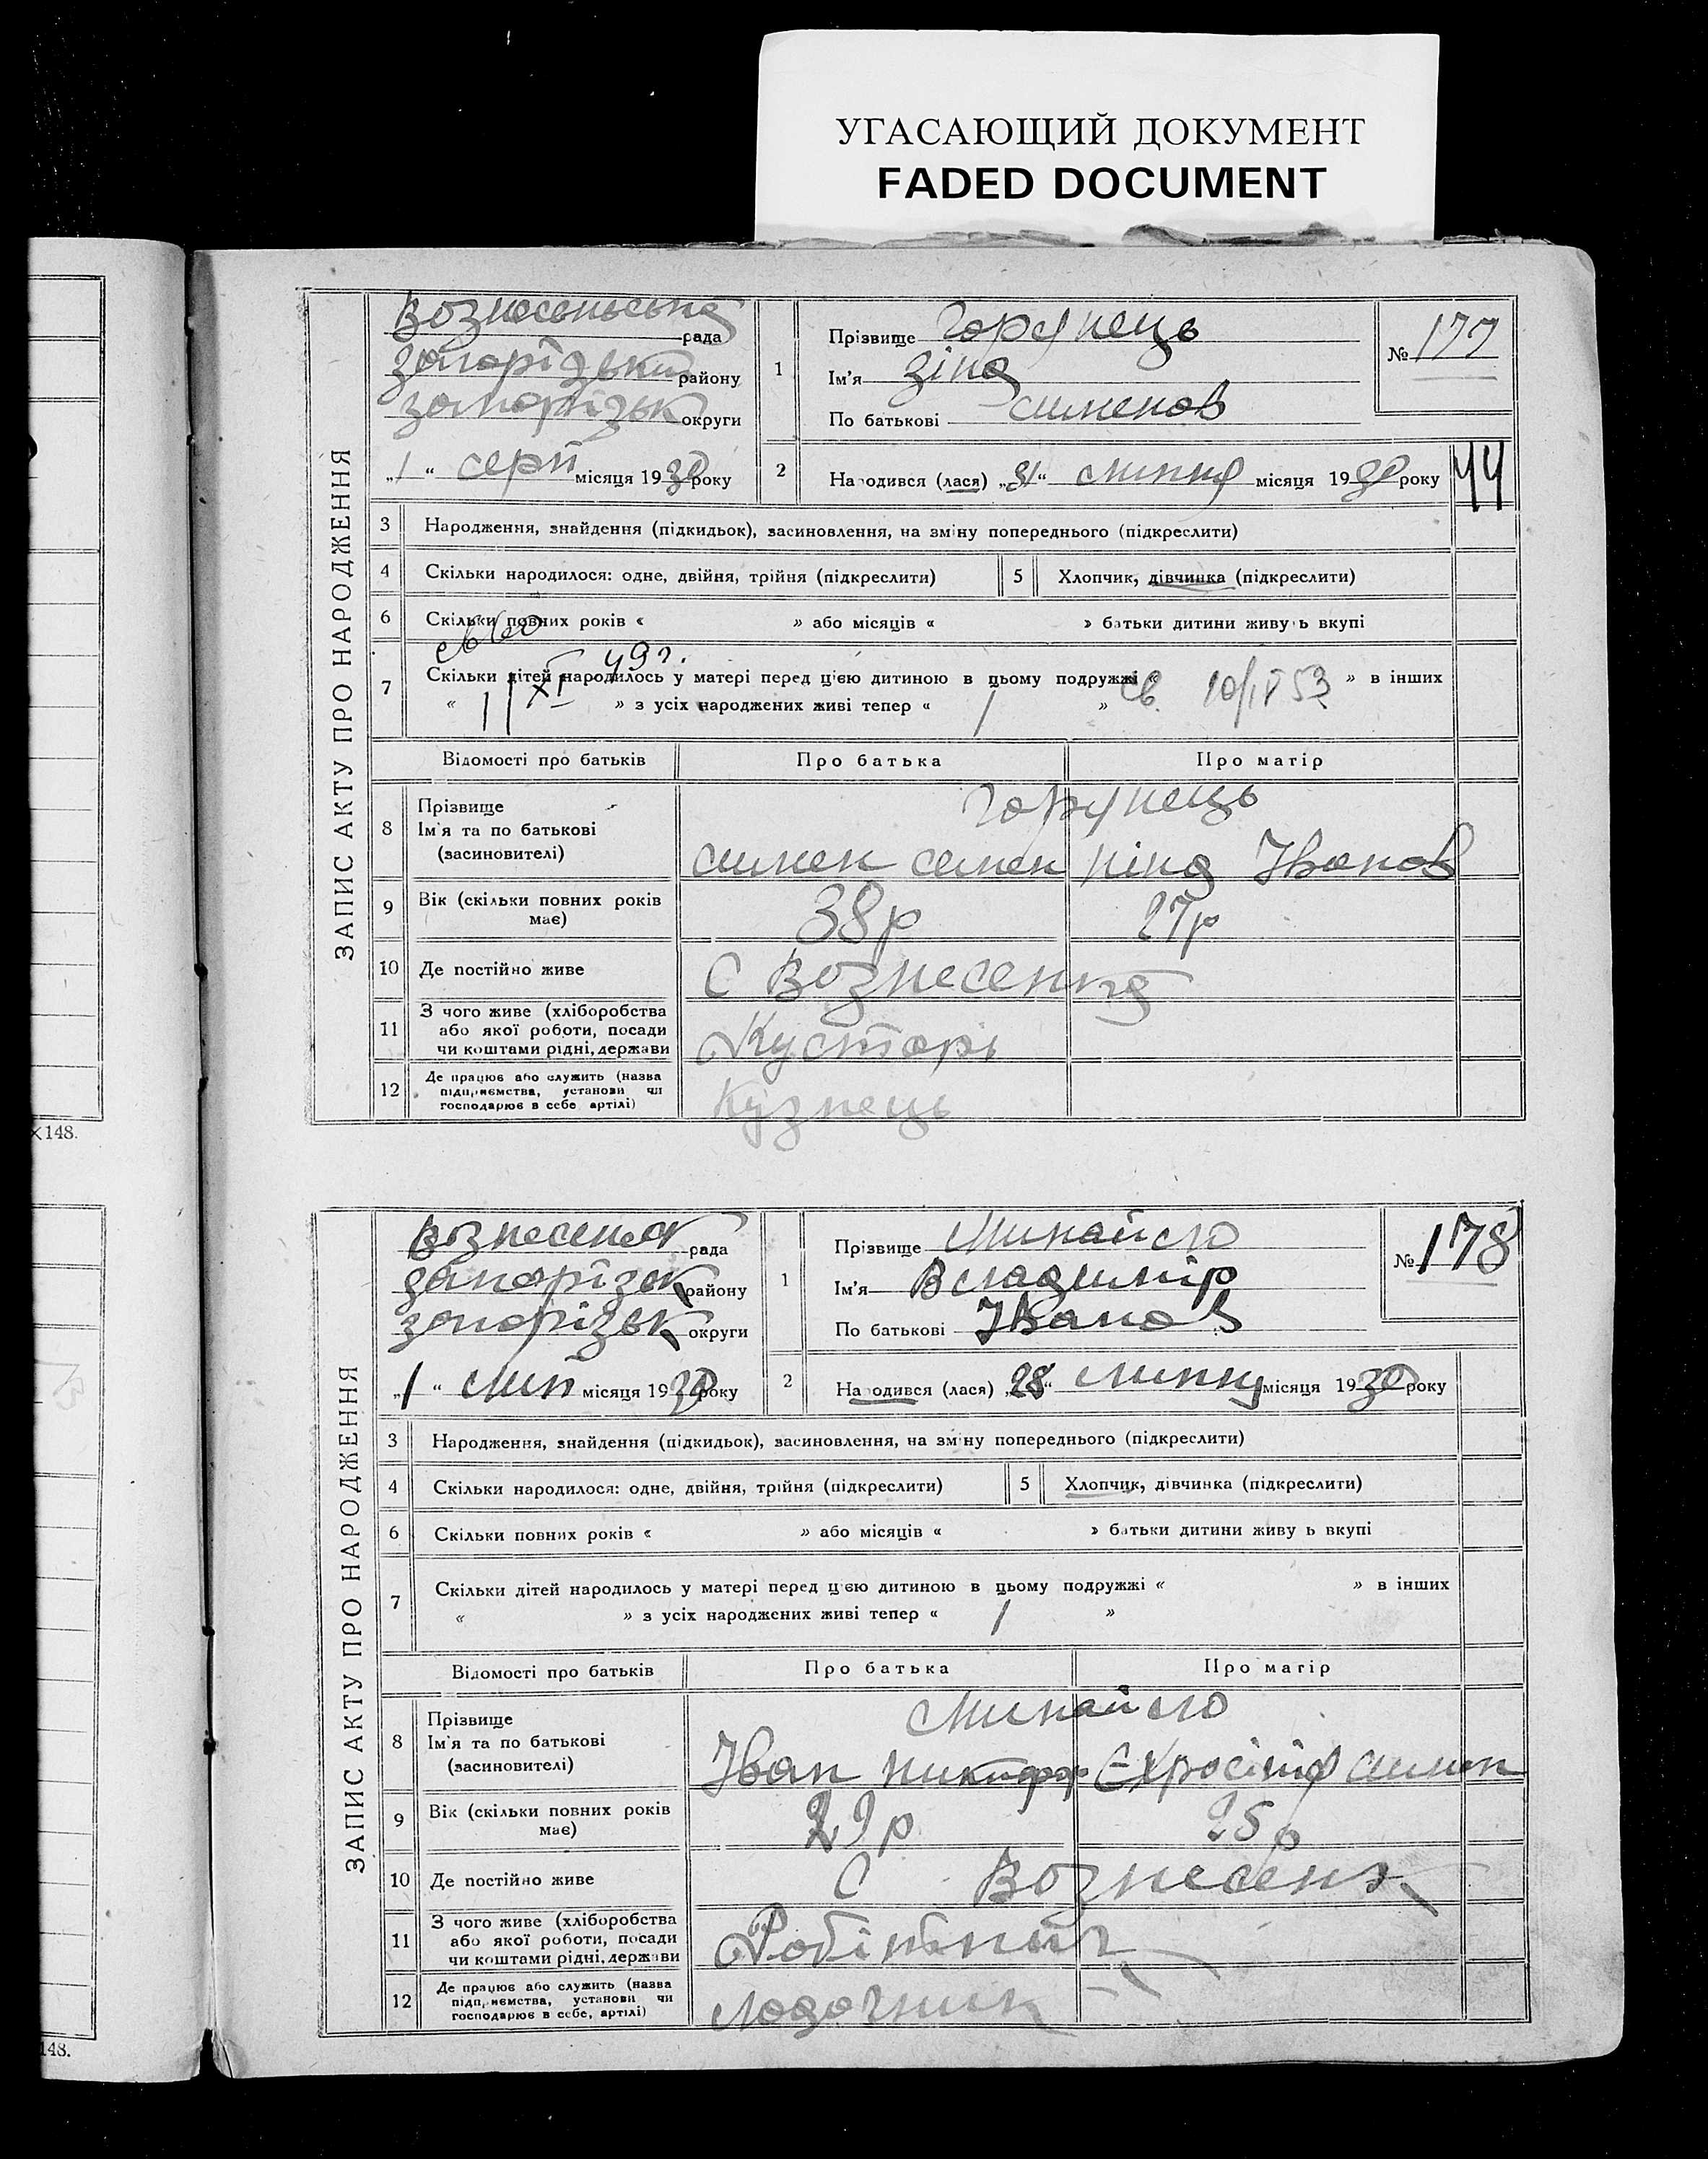 УГАСАЮЩИЙ ДОКУМЕНТ
FADED DOCUMENT
ЗАПИС АКТУ ПРО НАРОДЖЕННЯ
Вознесенська рада
Запорізьки району
Запорізьк округи
„1“ серп місяця 1930 року
1 Прізвище Горунець
Ім'я Зіна
По батькові Сименов
№ 177
2 Народився (лася) „31“ липня місяця 1930 року
44
3 Народження, знайдення (підкидьок), засиновлення, на зміну попереднього (підкреслити)
4 Скільки народилося: одне, двійня, трійня (підкреслити) 5 Хлопчик, дівчинка (підкреслити)
6 Скільки повних років « » або місяців « » батьки дитини живуть вкупі
7 Скільки дітей народилось у матері перед цією дитиною в цьому подружжі « » в інших
« » з усіх народжених живі тепер « 1 »
11/XI 49 г.
св. 10/IV 53
Відомості про батьків Про батька Про матір
8 Прізвище
Ім'я та по батькові
(засиновителі)
Горунець
Симен Семен Ніна Іванов
9 Вік (скільки повних років має) 38р 27р
10 Де постійно живе С Вознесенка
11 З чого живе (хліборобства
або якої роботи, посади
чи коштами рідні, держави
Кусторь
12 Де працює або служить (назва
підприємства, установи чи
господарює в себе артілі)
Кузнець
×148.
ЗАПИС АКТУ ПРО НАРОДЖЕННЯ
Вознесенск рада
Запорізьк району
Запорізьк округи
„1“ лип місяця 1930 року
1 Прізвище Минайло
Ім'я Владимір
По батькові Іванов
№ 178
2 Народився (лася) „28“ липня місяця 1930 року
3 Народження, знайдення (підкидьок), засиновлення, на зміну попереднього (підкреслити)
4 Скільки народилося: одне, двійня, трійня (підкреслити) 5 Хлопчик, дівчинка (підкреслити)
6 Скільки повних років « » або місяців « » батьки дитини живуть вкупі
7 Скільки дітей народилось у матері перед цією дитиною в цьому подружжі « » в інших
« » з усіх народжених живі тепер « 1 »
Відомості про батьків Про батька Про матір
8 Прізвище
Ім'я та по батькові
(засиновителі)
Минайло
Іван Никифор Єхросінія Симен
9 Вік (скільки повних років має) 29р 25р
10 Де постійно живе С Вознесенк
11 З чого живе (хліборобства
або якої роботи, посади
чи коштами рідні, держави
Робітник
12 Де працює або служить (назва
підприємства, установи чи
господарює в себе, артілі)
Лодочник
148.